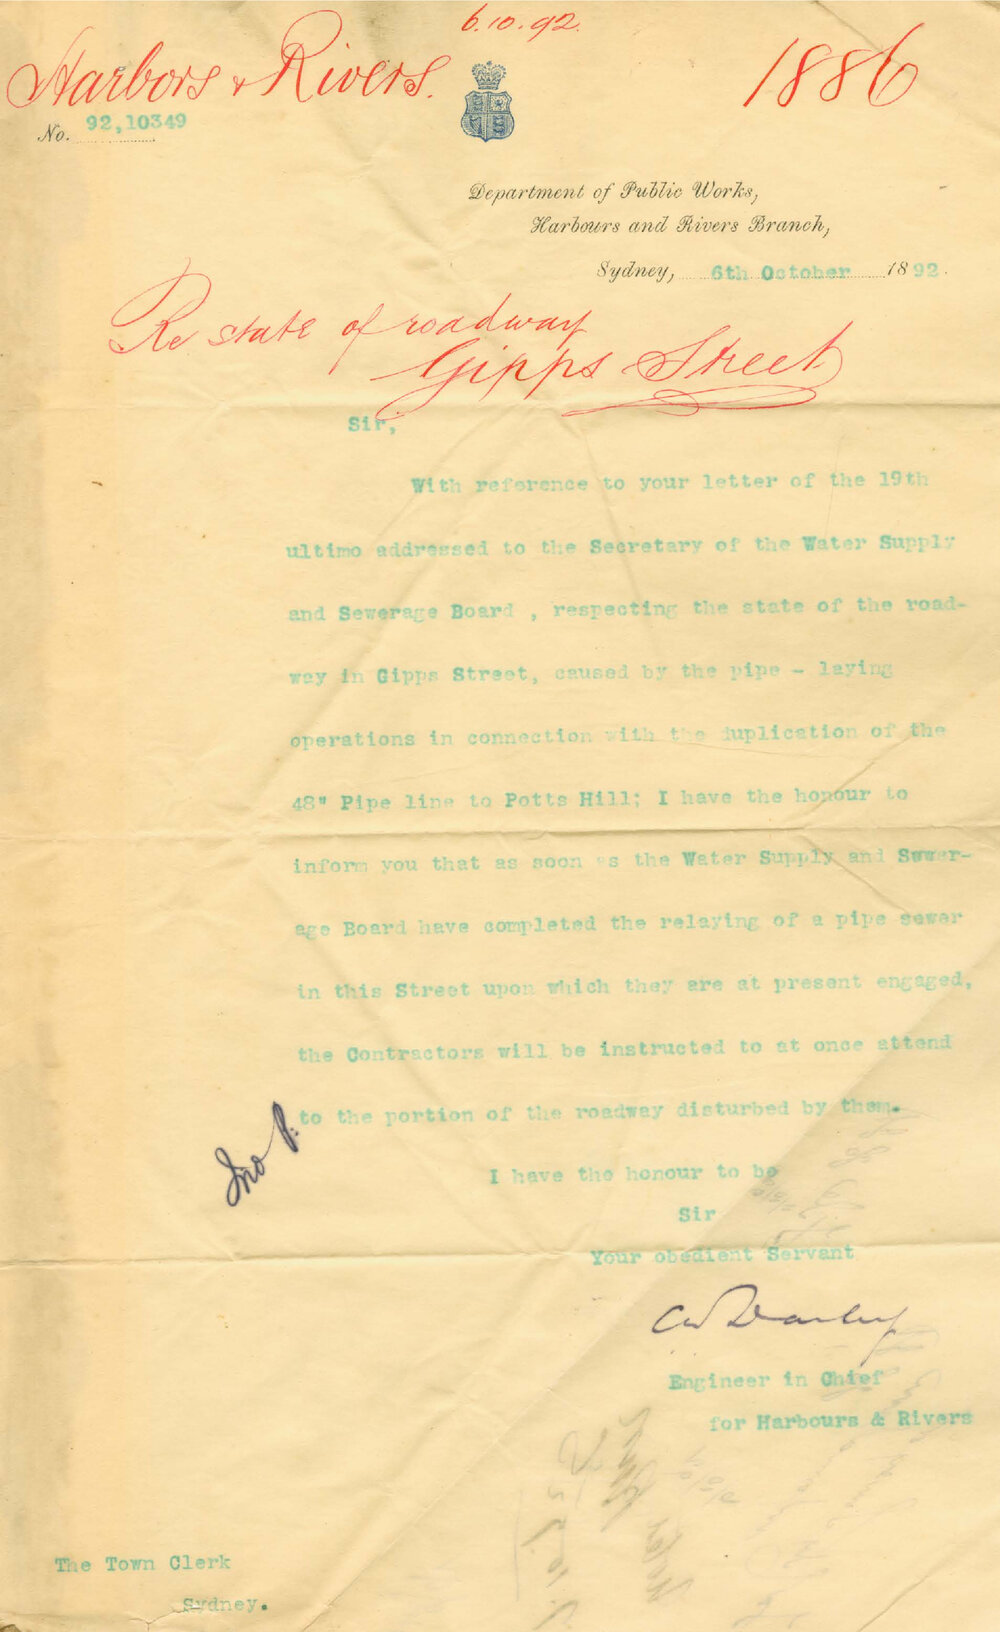 6.10.92.
Harbors & Rivers.
1886
No. 92,10349
Department of Public Works,
Harbours and Rivers Branch,
Sydney, 6th October 1892.
Re state of roadway
Gipps Street
Sir,
With reference to your letter of the 19th
ultimo addressed to the Secretary of the Water Supply
and Sewerage Board , respecting the state of the road-
way in Gipps Street, caused by the pipe - laying
operations in connection with the duplication of the
48" Pipe line to Potts Hill; I have the honour to
inform you that as soon as the Water Supply and Sewer-
age Board have completed the relaying of a pipe sewer
in this Street upon which they are at present engaged,
the Contractors will be instructed to at once attend
to the portion of the roadway disturbed by them.
I have the honour to be
Sir
Your obedient Servant
C W Darley
Engineer in Chief
for Harbours & Rivers
The Town Clerk
Sydney.